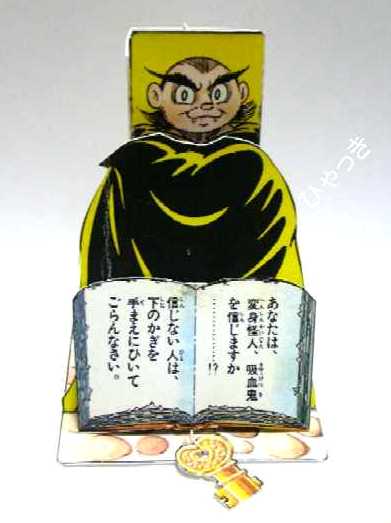 あなたは、
変身怪人、吸血鬼
を信じますか
…………!?
信じない人は、
下のかぎを
手まえにひいて
ごらんなさい。
ひゃっき